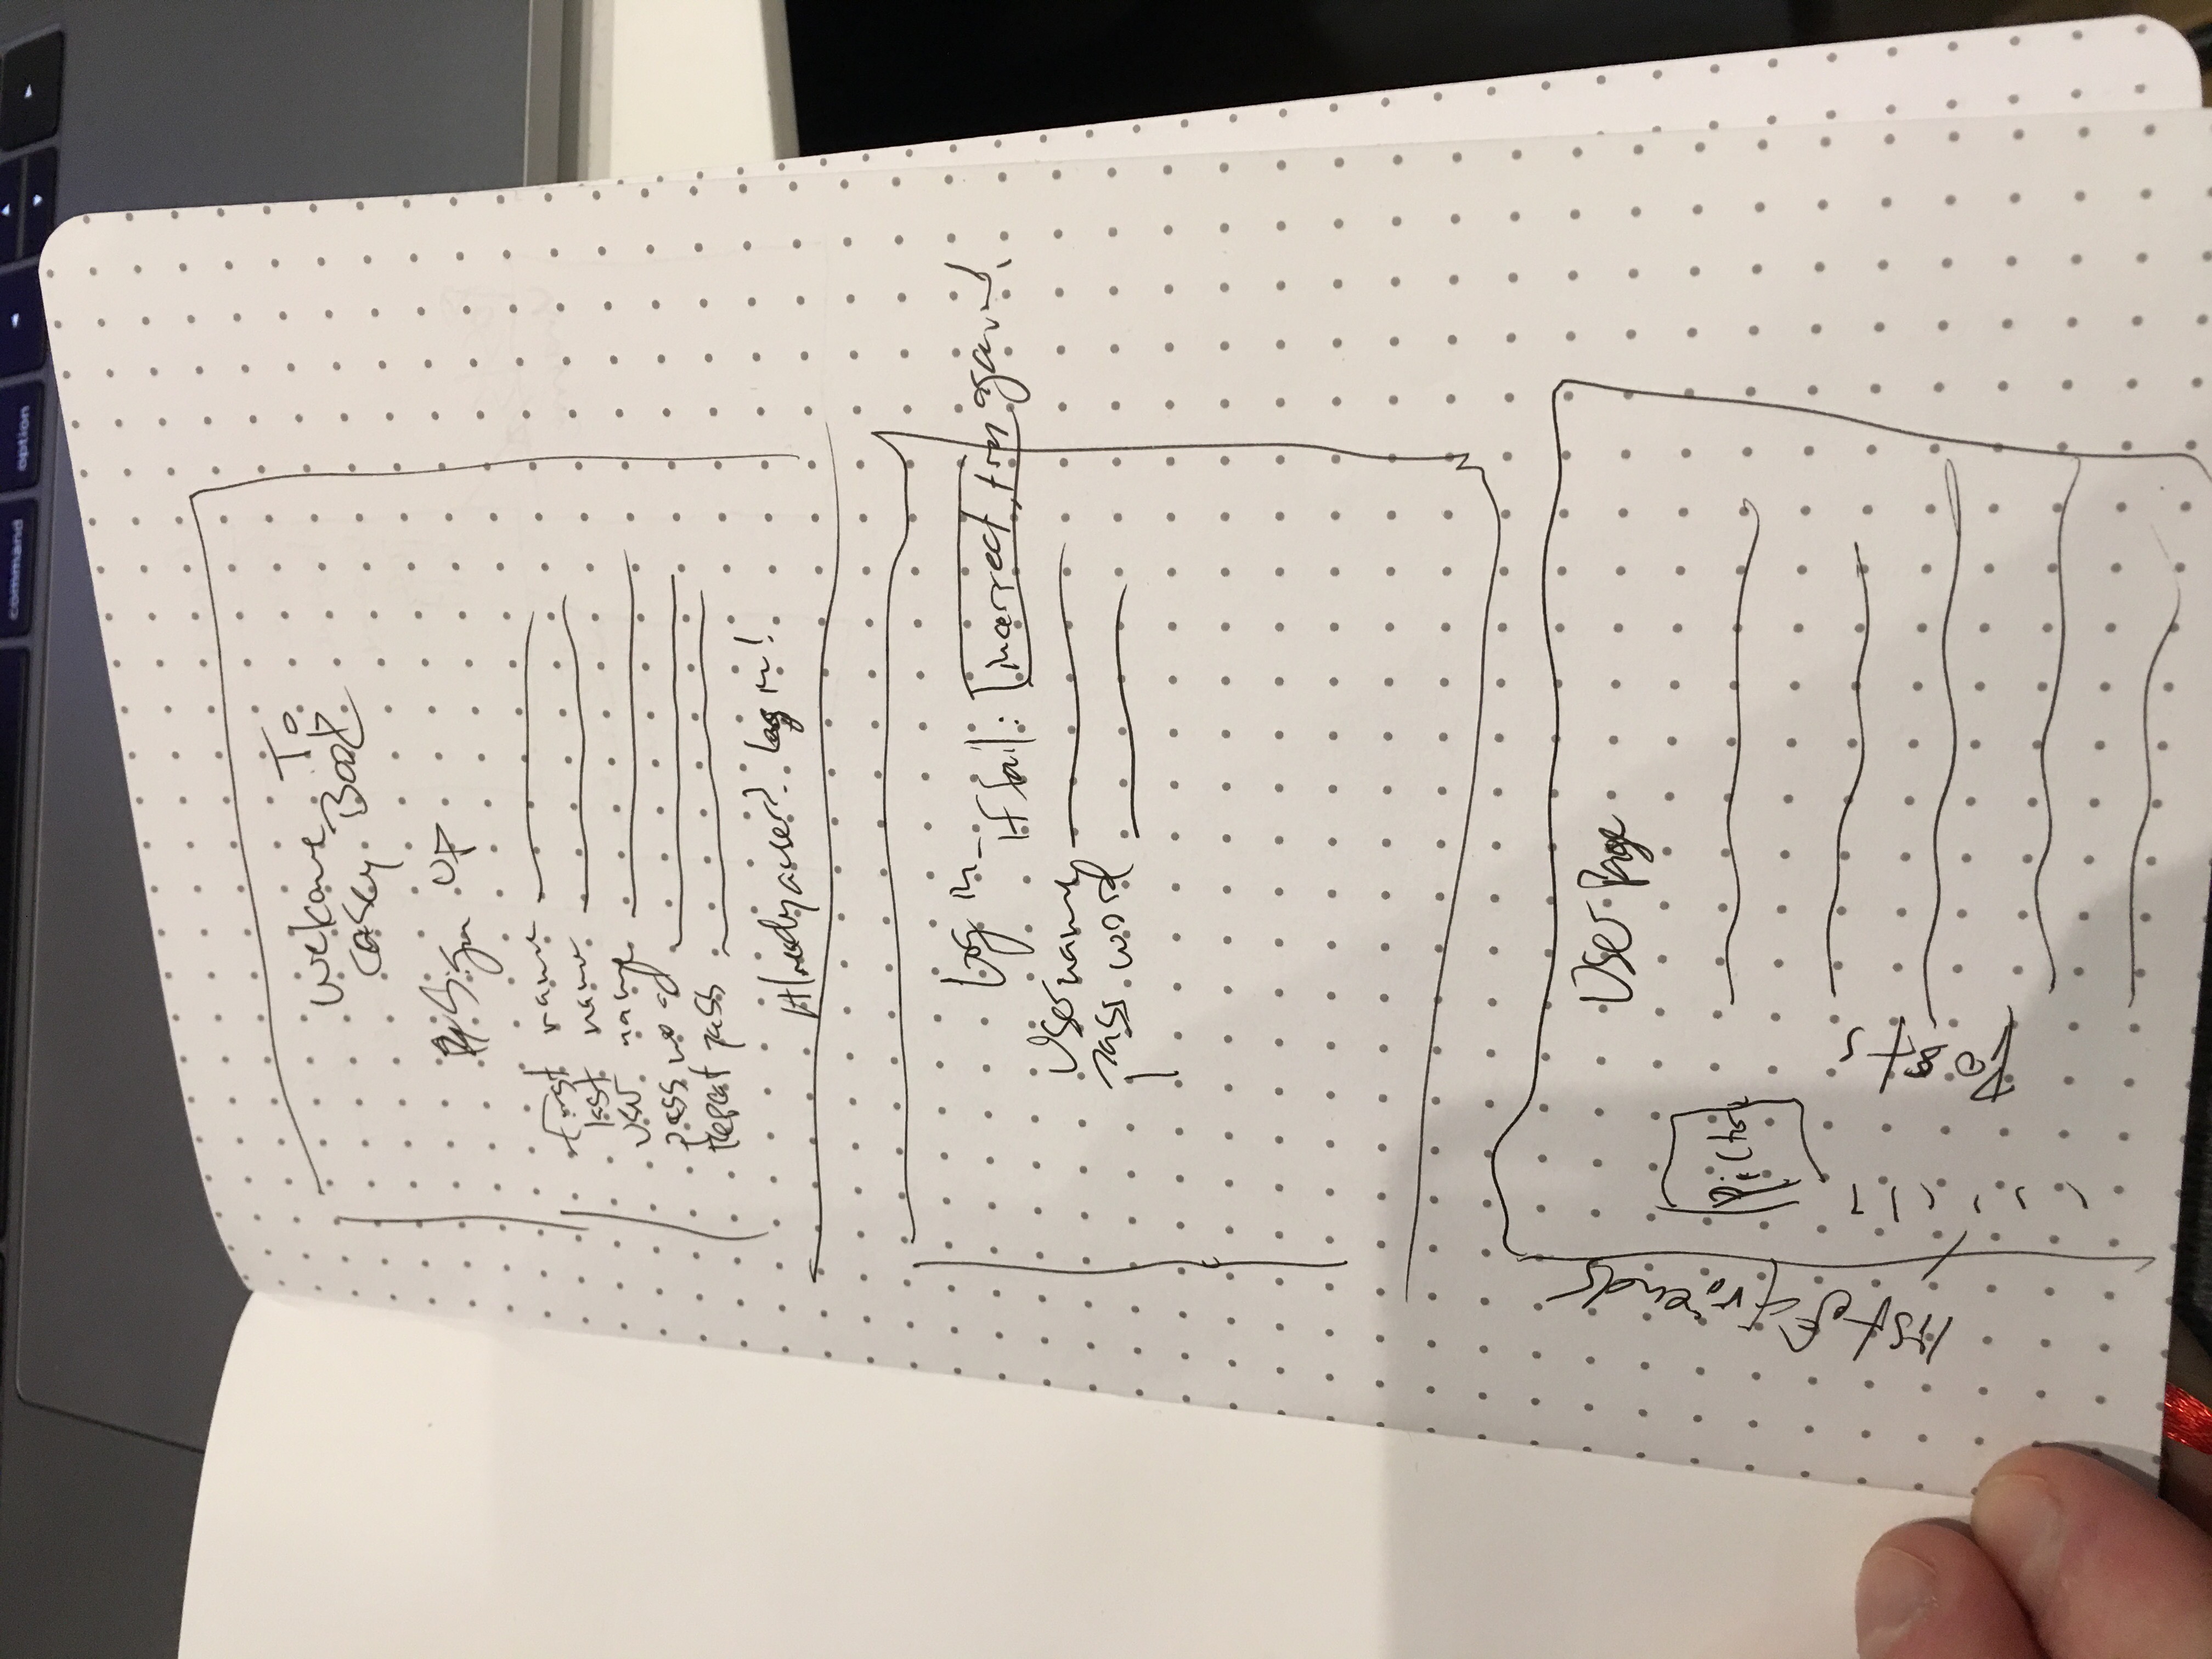 command option
Welcome To
Casey Book
Sign Up
first name
last name
user name
password
repeat pass
Already a user? Log in!
Log in
If fail: incorrect, try again!
Username
password
User Page
list of friends
Picture
Posts